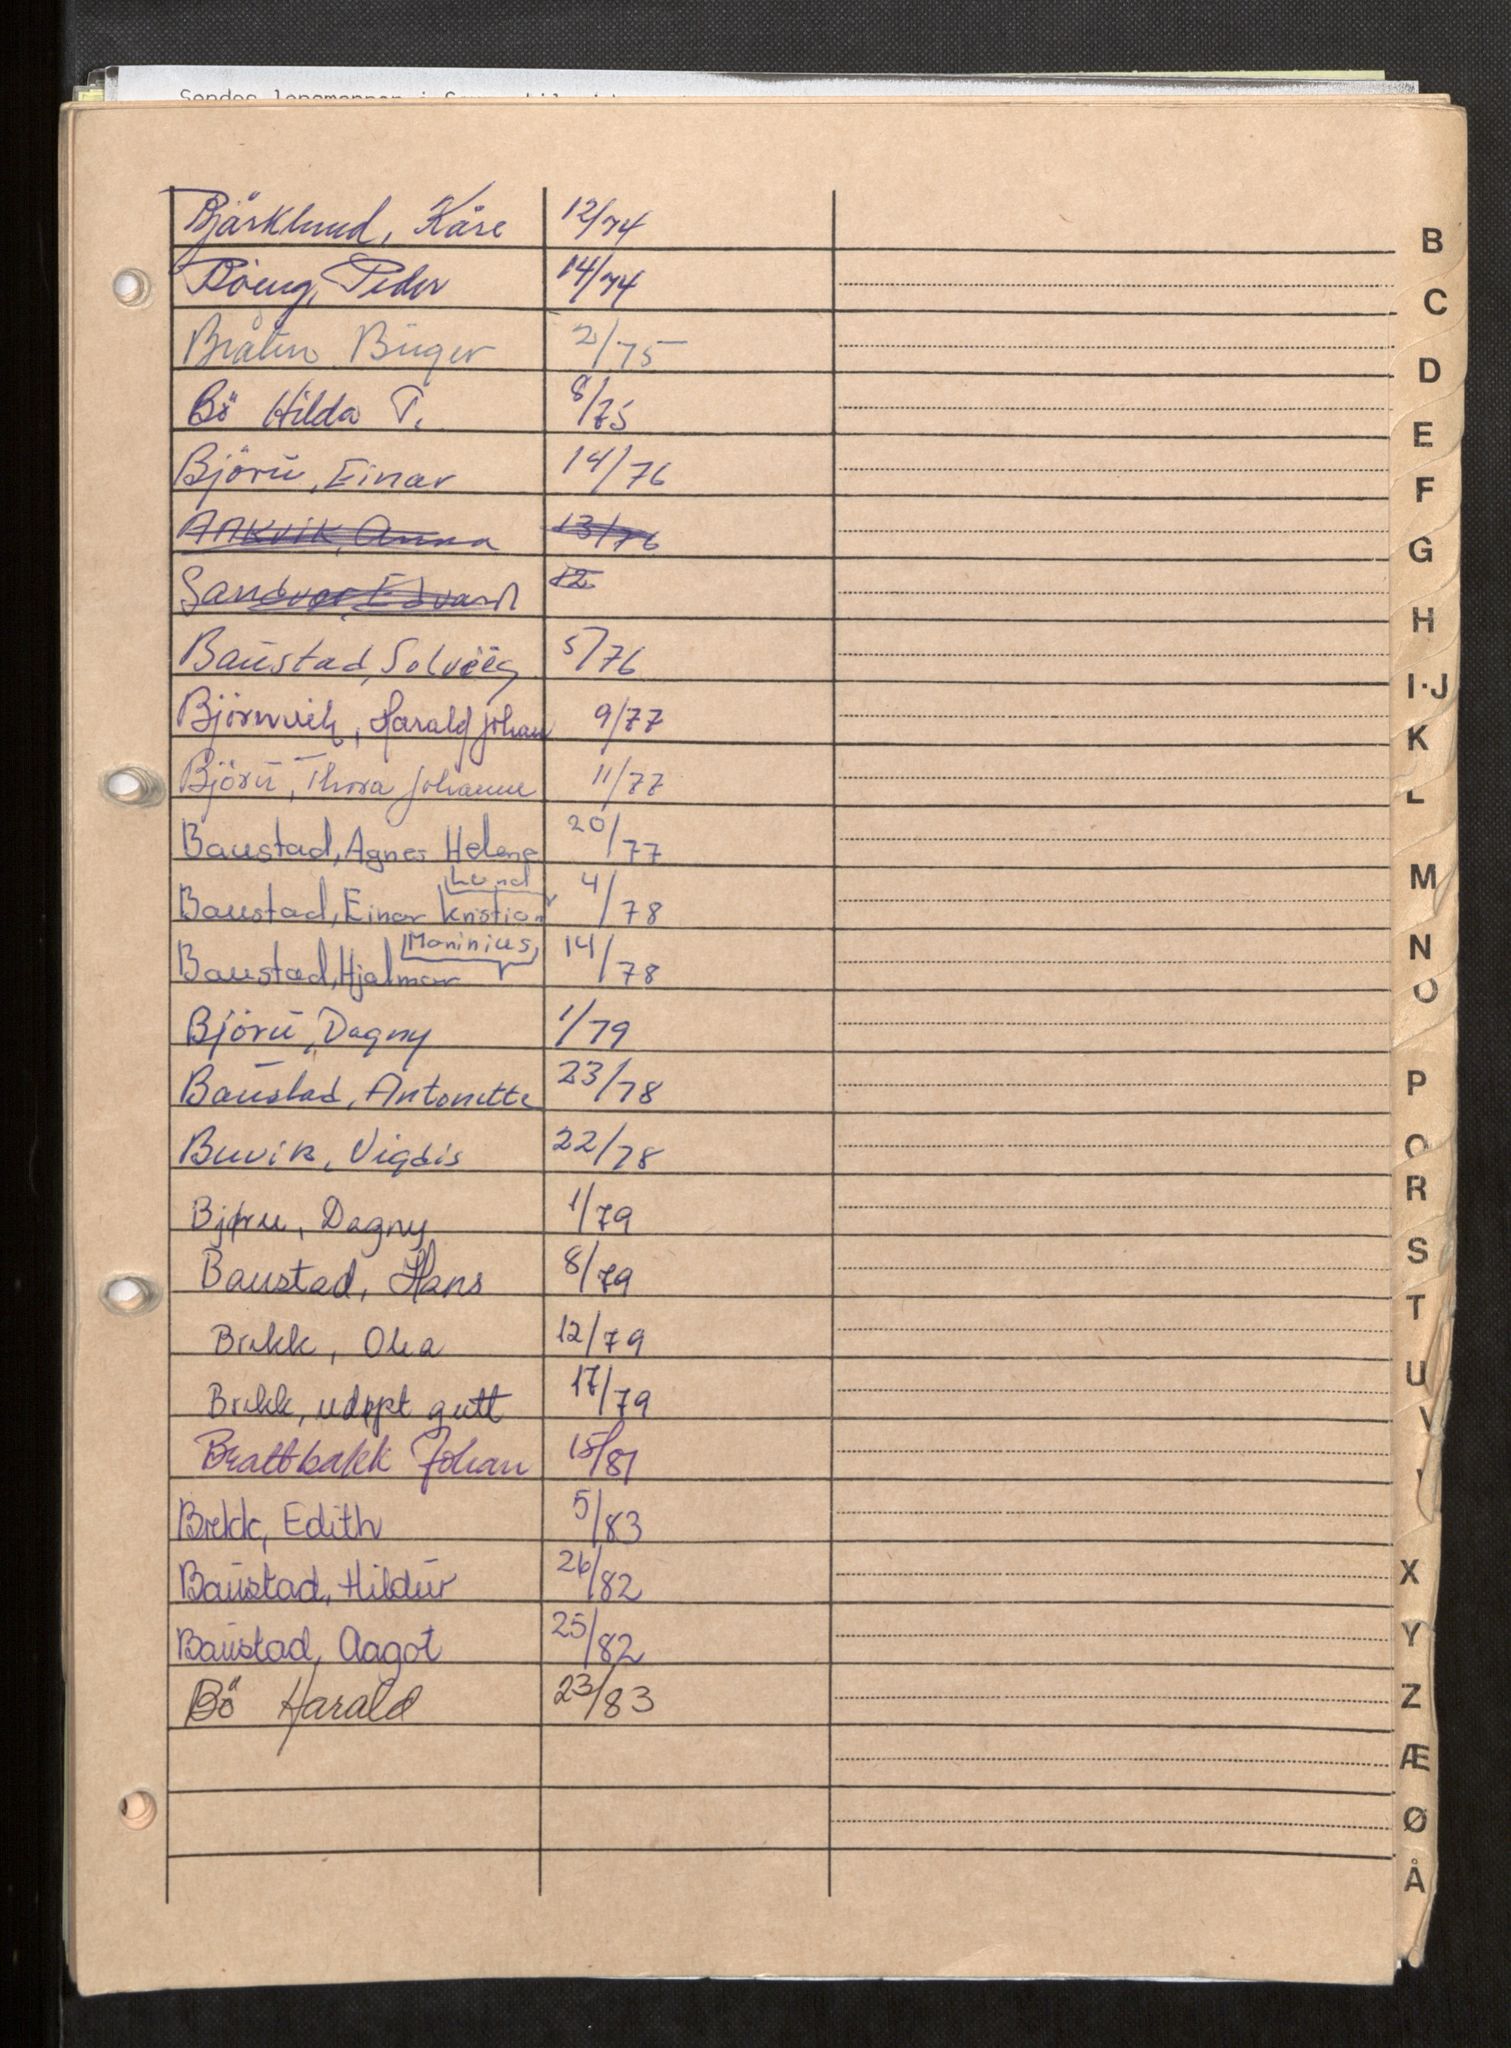 Bjärklund, Kåre 12/74
Böeng, Peder 14/74
Bråten Birger 2/75
Bö Hilda P. 8/75
Björu, Einar 14/76
Ankvik, Anna 13/76
Sandvær, Edvard 12
Baustad, Solveig 5/76
Björnvik, Harald Johan 9/77
Björu, Thora Johanne 11/77
Baustad, Agnes Helene 20/77
Lund
Baustad, Einar Kristian 4/78
Moninius,
Baustad, Hjalmar 14/78
Björu, Dagny 1/79
Baustad, Antonette 23/78
Buvik, Vigdis 22/78
Bjøru, Dagny 1/79
Baustad, Hans 8/79
Brekk, Olea 12/79
Brekk, udøpt gutt 17/79
Brattbakk Johan 15/81
Brekk, Edith 5/83
Baustad, Hildur 26/82
Baustad, Aagot 25/82
Bö Harald 23/83
B
C
D
E
F
G
H
I·J
K
L
M
N
O
P
Q
R
S
T
U
V
X
Y
Z
Æ
Ø
Å